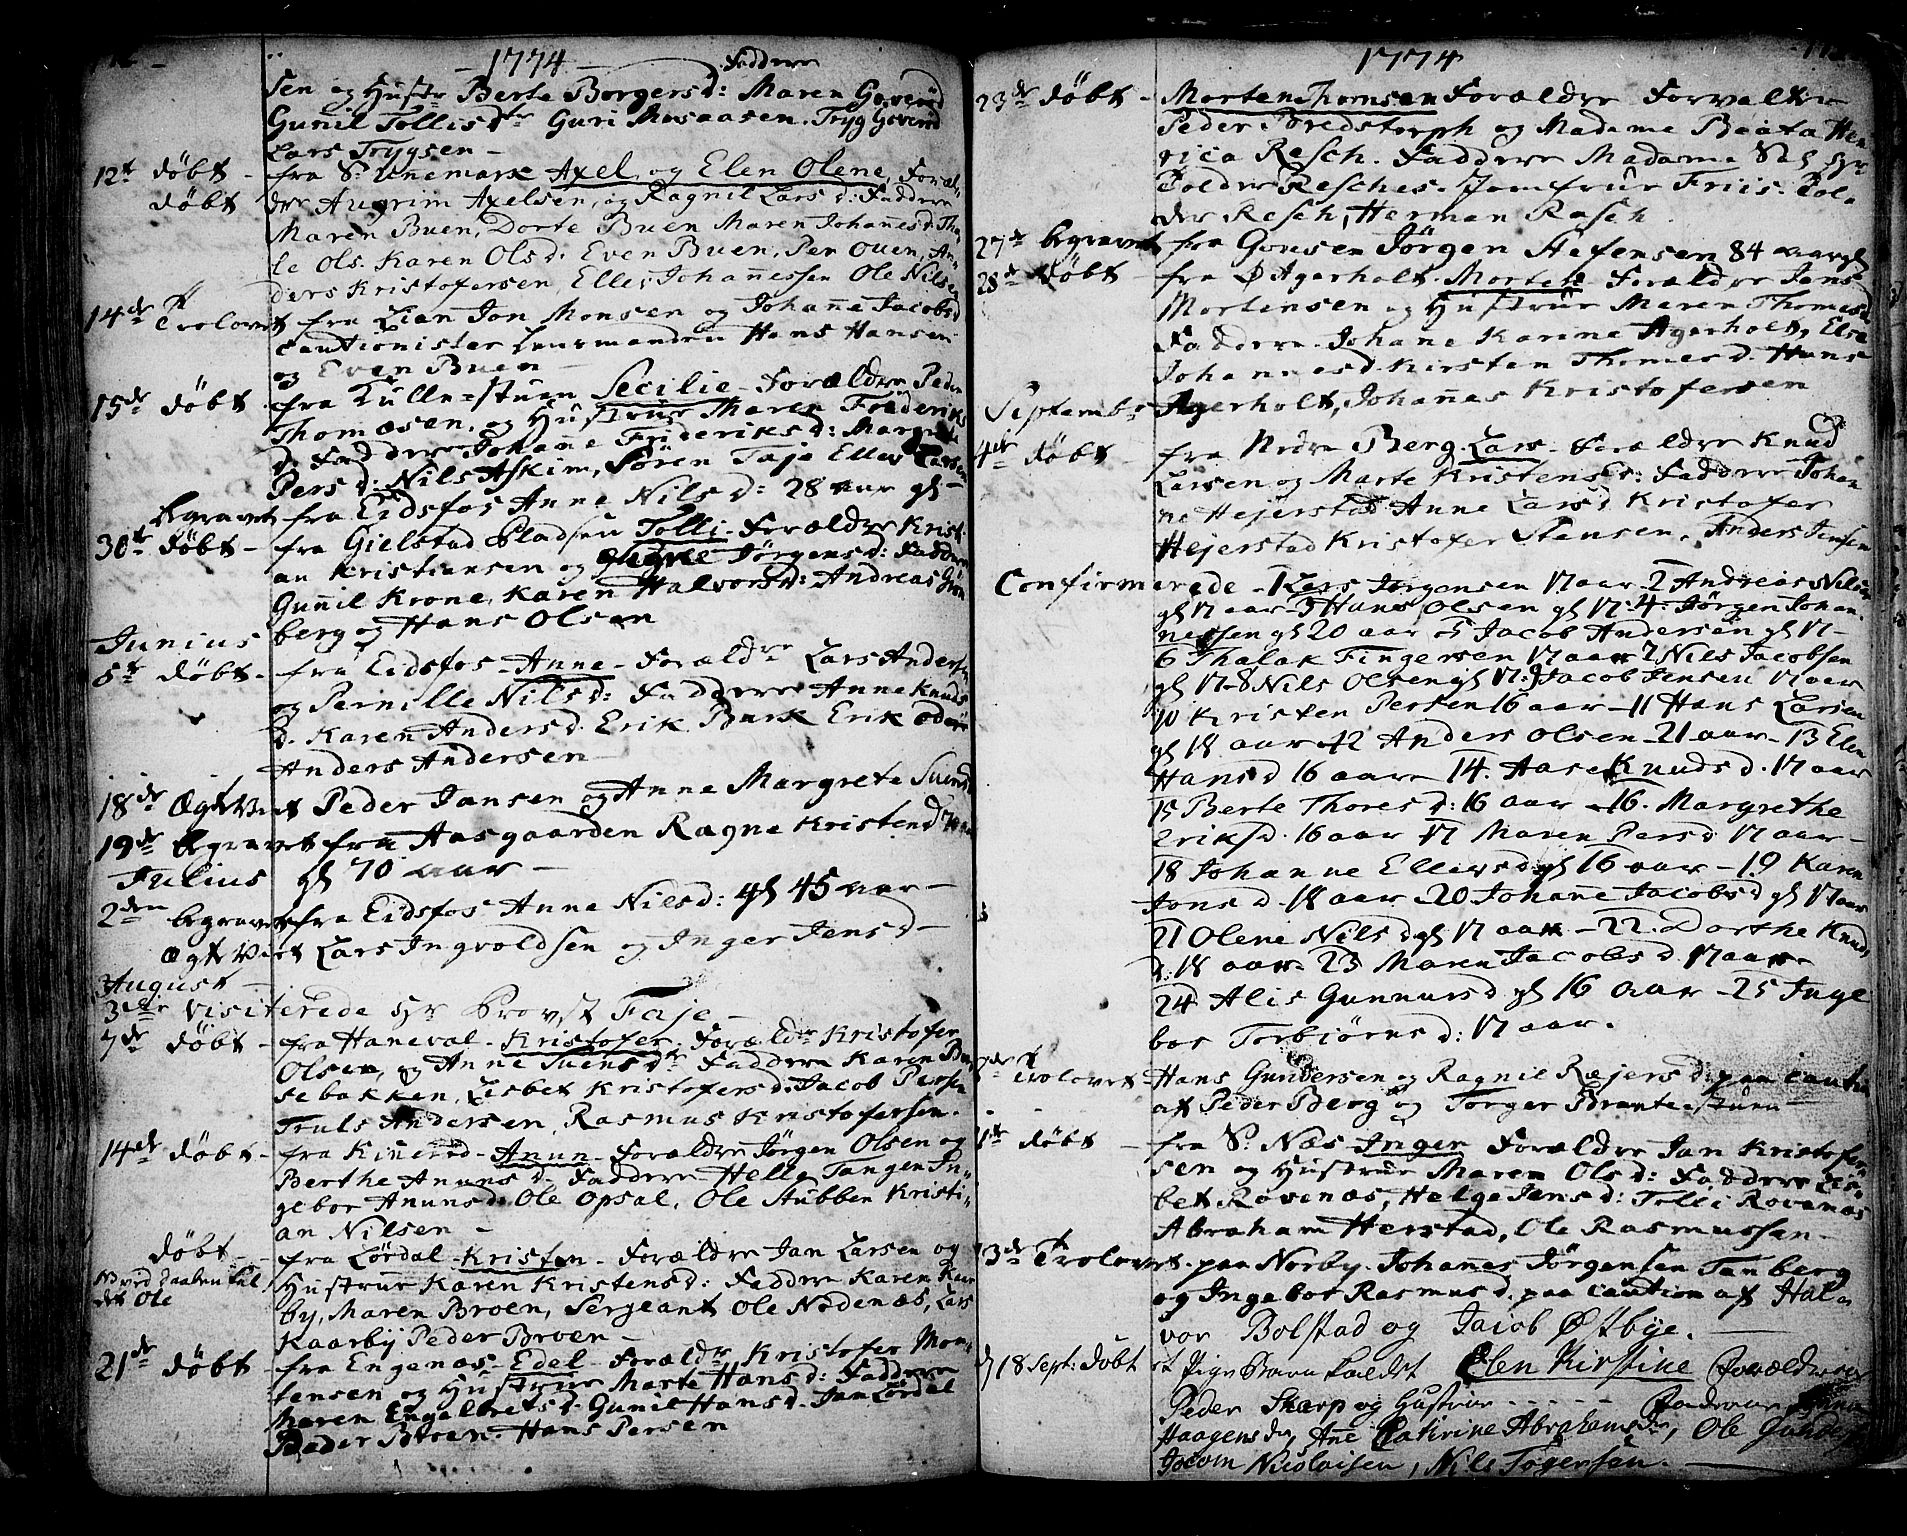 1774 Faddere
sen og Hustr Berte Borgersd: Maren Goverød
Gunil Tollisdtr Guri Musaasen. Tryg Goverød
Lars Trygsen –
12t døbt – fra S. Enemark Axel og Elen Olene, Foræl-
døbt dre Augrim Axelsen, og Ragnil Lars d: Faddere
Maren Buen, Dorte Buen Maren Johanesd: Tha-
le Ols. Karen Olsd. Even Buen, Per Buen, An-
ders Kristofersen, Elles Johannessen Ole Nilsen
14de Trolovet fra Lian Jon Monsen og Johane Jacobsd
Cautionister Lensmanden Hans Hansen
og Even Buen –
15de døbt fra Tulle-stuen Secilie – Forældre Peder
Thomæsen, og Hustrue Maren Frideriks
d. Faddere Johanne Frideriksd: Margrete
Persd: Nils Askim, Sören Taje Elles Larsen
Begravet fra Eidsfos Anne Nilsd: 28 aar gl –
30te døbt – fra Gielstad Pladsen Tolli – Forældre Kristi
an Kristiansen og Signe Jørgensd: Faddere
Gunnil Krone, Karen Halvorsd: Andreas Grøn
berg og Hans Olsen
Junius
5te døbt – fra Eidsfos – Anne – Foræld re Lars Andersen
og Pernille Nilsd: Faddere Anne Knuds
d. Karen Andersd. Erik Burk Erik
Anders Andersen –
18de Ægtviet Peder Jansen og Anne Margrete Suensd
19de Begravet fra Aasgaarden Ragne Kristend
Julius gl 70 aar –
2den begravet fra Eidsfos Anne Nilsd: gl 45 aar –
Ægtviet Lars Ingvoldsen og Inger Jensd –
August
3die Visiterede Hr Provst Faje –
7de døbt – fra Haneval – Kristofer. Forældr Kristofer
Olsen, og Anne Suensd Faddere Karen Bu
sebakken, Lisbet Kristofersd. Jacob Persen
Truls Andersen, Rasmus Kristofersen.
14de døbt – fra Kinerød – Anun – Forældre Jørgen Olsen og
Berthe Anunsd. Faddere Helle Tangen In-
gebor Anunsd: Ole Opsal, Ole Stubben Kristi-
an Nilsen –
døbt – fra Lørdal – Kristen – Forældre Jan Larsen og
NB ved daaben kal
det Ole
Hustrue Karen Kristensd: Faddere Karen Kaar
by, Maren Broen, Sergeant Ole Nødenæs, Lars
Kaarby Peder Broen –
21de døbt – fra Engenæs – Edel – Forældr Kristofer Mor-
tensen og Hustrue Marte Hansd: Faddere
Maren Engelbretsd. Gunil Hansd. Jan Lørdal
Peder Broen. Hans Persen
1774
23de døbt – Morten Thomsen Forældre Forvalter
Peder Bredstorph og Madame Beata Hen
rica Resch. Faddere Madame Hr
Colder Resches. Jomfrue Friis. Col-
der Resch, Herman Rasch
27de begravet fra Gonsen Jörgen Stefensen 84 aar gl
28de døbt – fra Ø Agerholt Morten Forældre Jens
Mortensen og Hustrue Maren Thomasd
Faddere – Johane Karine Agerholt, Else
Johannesd Kirsten Thomesd. Hans
Septembr Agerholt, Johanes Kristofersen
4de døbt – fra Nedre Berg – Lars – Forældre Knud
Larsen og Marte Kristensd: Faddere Johan
ne Hejerstad Anne Larsd Kristofer
Hejerstad Kristofer Stensen, Anders Jensen
Confirmerede – 1 Lars Jørgensen 17 aar – 2 Andreas Nilsen
gl 17 aar – 3 Hans Olsen gl 17 – 4 – Jørgen Johan
nessen gl 20 aar 5 Jacob Andersen gl 17 –
6 Thalak Fingersen 17 aar 7 Nils Jacobsen
gl 17 – 8 Nils Olsen gl 17: 9 Jacob Jensen 17 aar
10 Kristen Persen 16 aar – 11 Hans Larsen
gl 18 aar 12 Anders Olsen – 21 aar – 13 Elen
Hansd 16 aar – 14. Aase Knudsd. 17 aar
15 Berte Thoresd: 16 aar – 16. Margrethe
Eriksd. 16 aar 17 Maren Persd 17 aar –
18 Johanne Ellevsd gl 16 aar – 19 Karen
Jonsd. 18 aar – 20 Johane Jacobsd gl 17 aar
21 Olene Nilsd gl 17 aar – 22. Dorthe Knuds
d. 18 aar – 23 Maren Jacobsd 17 aar –
24 Alis Gunnursd gl 16 aar – 25 Inge
bor Torbiörnsd: 17 aar.
Trolovet Hans Gundersen og Ragnil Rejersd. paa Caution
af Peder Berg og Torger Brente-stuen
døbt – fra S. Næs – Inger Forældre Jan Kristofer
sen og Hustrue Maren Olsd: Faddere Lis-
bet Rovenæs, Helge Jensd: Tolli Rovenæs
Abraham Herstad, Ole Rasmussen –
13de Trolovet – paa Norby Johanes Jörgensen Tanberg
og Ingebor Rasmusd. paa Caution af Hal-
vor Bolstad og Jacob Østbye. –
d 18 Sept: døbt et Pige Barn kaldet Elen Kirstine Forældrene
Peder Skarp og Hustrue - - - - - Faddere Anne
Haagensdtr, Ane Cathrine Abrahamsdr, Ole Gunders
Jocom Nicolaisen, Nils Togersen. –